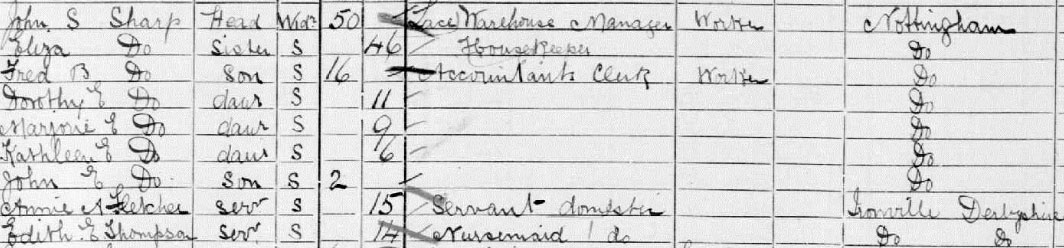 John S Sharp Head Widr 50 Lace Warehouse Manager Worker Nottingham
Eliza Do Sister S 46 Housekeeper Do
Fred B Do Son S 16 Accountants Clerk Worker Do
Dorothy E Do daur S 11 Do
Marjorie E Do daur S 9 Do
Kathleen E Do daur S 6 Do
John E Do Son S 2 Do
Annie A Fletcher Servr S 15 Servant domestic Ironville Derbyshire
Edith E Thompson Servr S 14 Nursemaid do Do Do